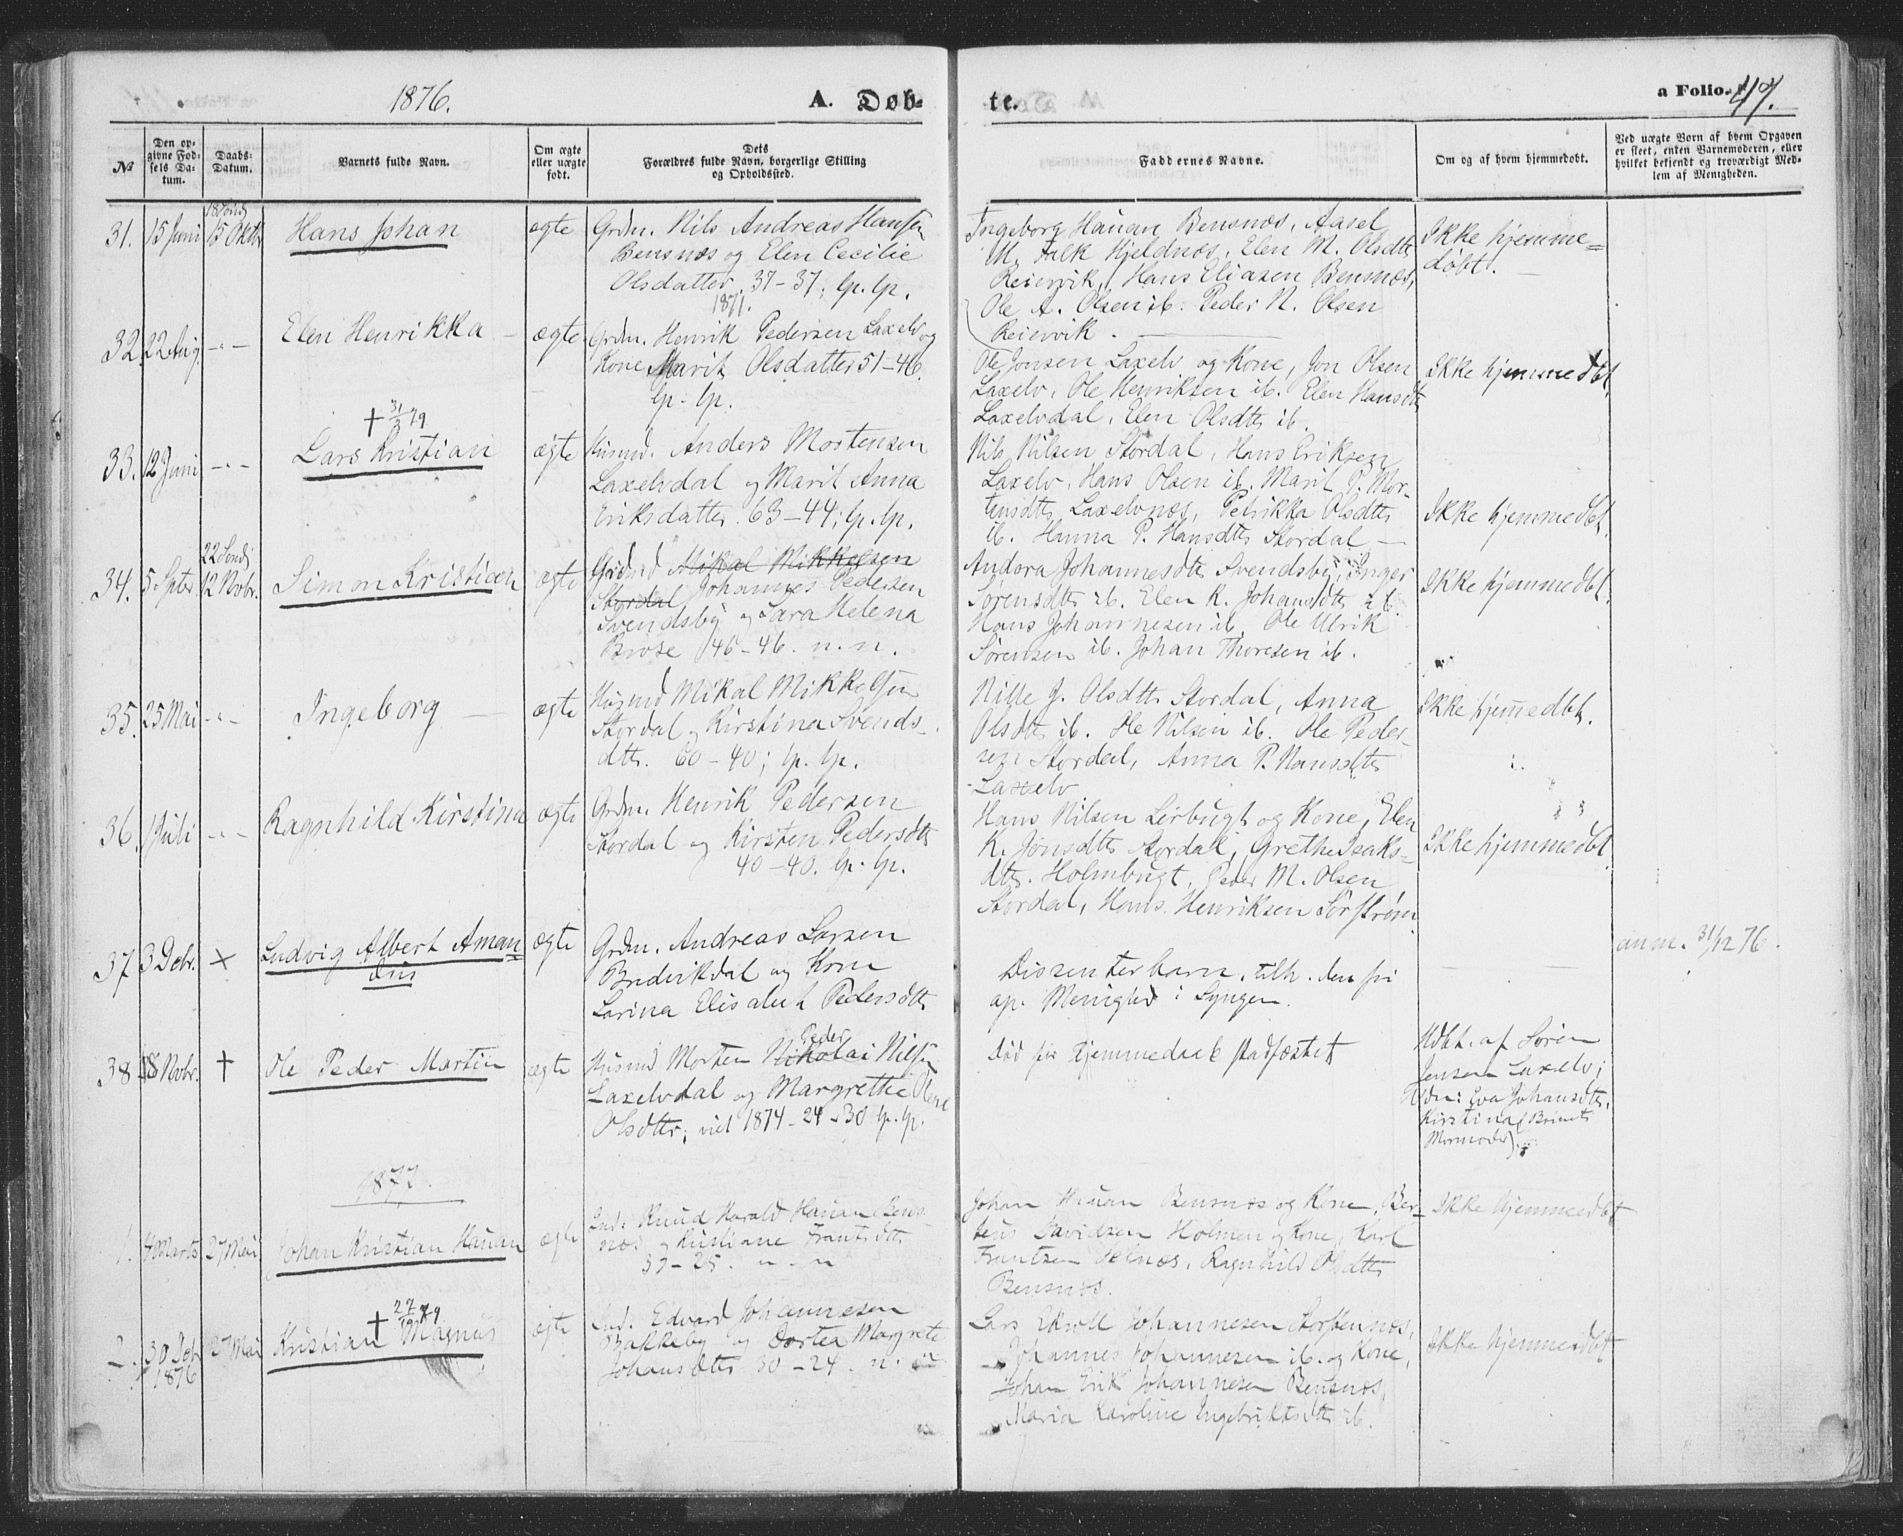 1876.
A. Døb-
te.
a Folio. 47.
№
Den op-
givne Fød-
sels Da-
tum.
Daabs-
Datum.
Barnets fulde Navn.
Om ægte
eller uægte
født.
Dets
Forældres fulde Navn, borgerlige Stilling
og Opholdssted.
Faddernes Navne.
Om og af hvem hjemmedøbt.
Ved uægte Børn af hvem Opgaven
er skeet, enten Barnemoderen, eller
hvilket bekjendt og troværdigt Med-
lem af Menigheden.
31. 15 Juni
15 Oktbr
Hans Johan
ægte
Grdm. Nils Andreas Hansen
Bensnæs og Elen Cecilie
Olsdatter 37-37; lp. lp.
1871.
Ingeborg Hauan Bensnæs, Aasel
M. Falk Hjeldnæs, Elen M. Olsdtr
Reiervik, Hans Eliasen Bensnæs,
Ole A. Olsen ib. Peder N. Olsen
Reiervik.
Ikke hjemme=
døbt.
32. 22 Aug. -"-
Elen Henrikka
ægte
Grdm. Henrik Pedersen Laxelv og
Kone Marit Olsdatter 51-46.
lp. lp.
Ole Jonsen Laxelv og Kone, Jon Olsen
Laxelv, Ole Henriksen ib. Elen Hansdtr
Laxelvdal, Elen Olsdtr ib.
Ikke hjemmedbt.
33. 12 Juni -"-
+ 31/3 79
Lars Kristian
ægte
Husmd. Anders Mortensen
Laxelvdal og Marit Anna
Eriksdatter. 63-44; lp. lp.
Nils Nilsen Stordal, Hans Eriksen
Laxelv, Hans Olsen ib. Marit P. Mor-
tensdtr Laxelvnæs, Petrikka Olsdtr
ib. Hanna P. Hansdtr Stordal
Ikke hjemmedbt.
34. 5 Sptr.
22 Sondj
12 Novbr.
Simon Kristian
ægte
Grdmd Mikal Mikkelsen
Stordal Johannes Pedersen
Svendsby og Sara Helena
Brose 46-46. n. n.
Andora Johannesdtr Svendsby, Inger
Sørensdtr ib. Elen K. Johansdtr ib.
Hans Johannesen ib. Ole Ulrik
Sørensen ib. Johan Thoresen ib.
Ikke hjemmedbt.
35. 25 Mai -"-
Ingeborg
ægte
Husmd Mikal Mikkelsen
Stordal og Kirstina Svends-
dtr. 60-40; lp. lp.
J. Olsdtr Stordal, Anna
Olsdtr ib. Ole Nilsen ib. Ole Peder-
sen Stordal, Anna P. Hansdtr
Laxelv
Ikke hjemedbt.
36. 1 Juli -"-
Ragnhild Kirstina
ægte
Grdm. Henrik Pedersen
Stordal og Kirsten Pedersdtr
40-40. lp. lp.
Hans Nilsen Lerbugt og Kone, Elen
K. Jonsdtr Stordal, Grethe Isaks-
dtr. Holmbugt, Peder M. Olsen
Stordal, Hans Henriksen Sørstrøm
Ikke hjemmedbt
37. 3 Debr. ×
Ludvig Albert Aman=
dus
ægte
Grdm. Andreas Larsen
Breivikdal og Kone
Larina Elisabet Pedersdtr
Dissenterbarn, tilh. den fri
ap. Menighed i Lyngen.
anm. 31/12 76.
38. 18 Novbr. †
Ole Peder Martin
ægte
Peder
Husmd Morten Nikolai Nilsen
Laxelvdal og Margrethe Olene
Olsdtr; viet 1874-24-30 lp. lp.
Død før Hjemmedaab stadfæstet
Hdbt. af Søren
Jensen Laxelv;
Fdr: Eva Johansdtr,
Kirstina (Barnets
Mormoder).
1877.
1. 4 Marts 27 Mai
Johan Kristian Hauan
ægte
Ind: Knud Harald Hauan Bens-
næs og Kristiane Frantsdtr
37-25. n. n
Johan Hauan Bensnæs og Kone, Ber-
teus Davidsen Holmen og Kone, Karl
Frantsen Selnæs, Ragnhild Olsdtr
Bensnæs.
Ikke hjemmedbt
2. 30 Deb
1876
27 Mai
+ 22/12 79
Kristian Magnus
ægte
Ind. Edvard Johannesen
Bakkeby og Dortea Margrete
Johansdtr 30-24. n. n
Lars Skroll Johannesen Storstennæs,
Johannes Johannesen ib. og Kone,
Johan Erik Johannesen Bensnæs,
Maria Karoline Ingebriktsdtr ib.
Ikke hjemmedbt